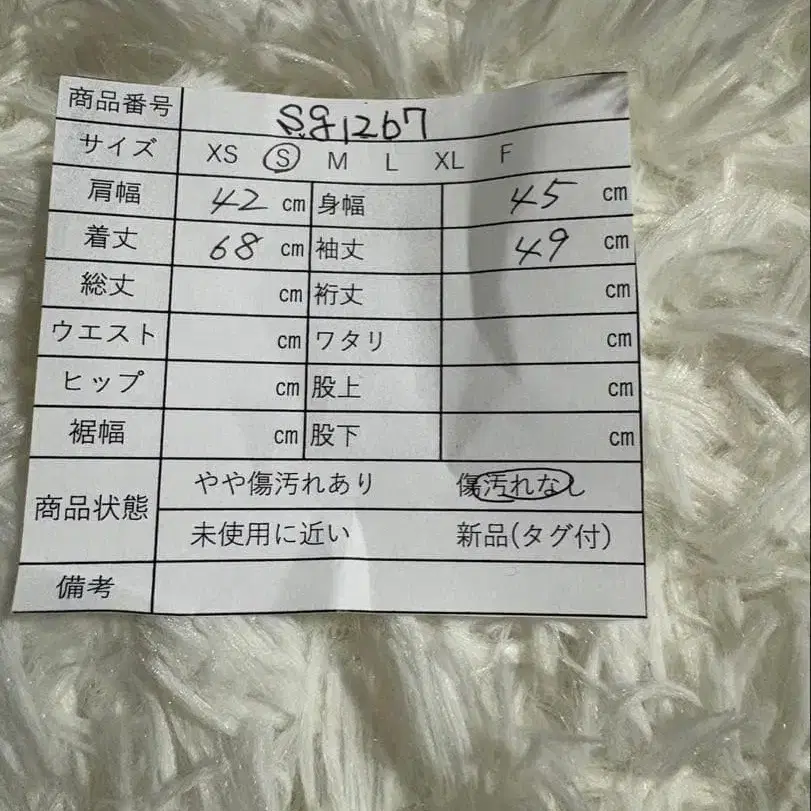 商品番号 Sg1267
サイズ XS S M L XL F
肩幅 42 cm 身幅 45 cm
着丈 68 cm 袖丈 49 cm
総丈 cm 裄丈 cm
ウエスト cm ワタリ cm
ヒップ cm 股上 cm
裾幅 cm 股下 cm
商品状態 やや傷汚れあり 傷汚れなし
未使用に近い 新品(タグ付)
備考